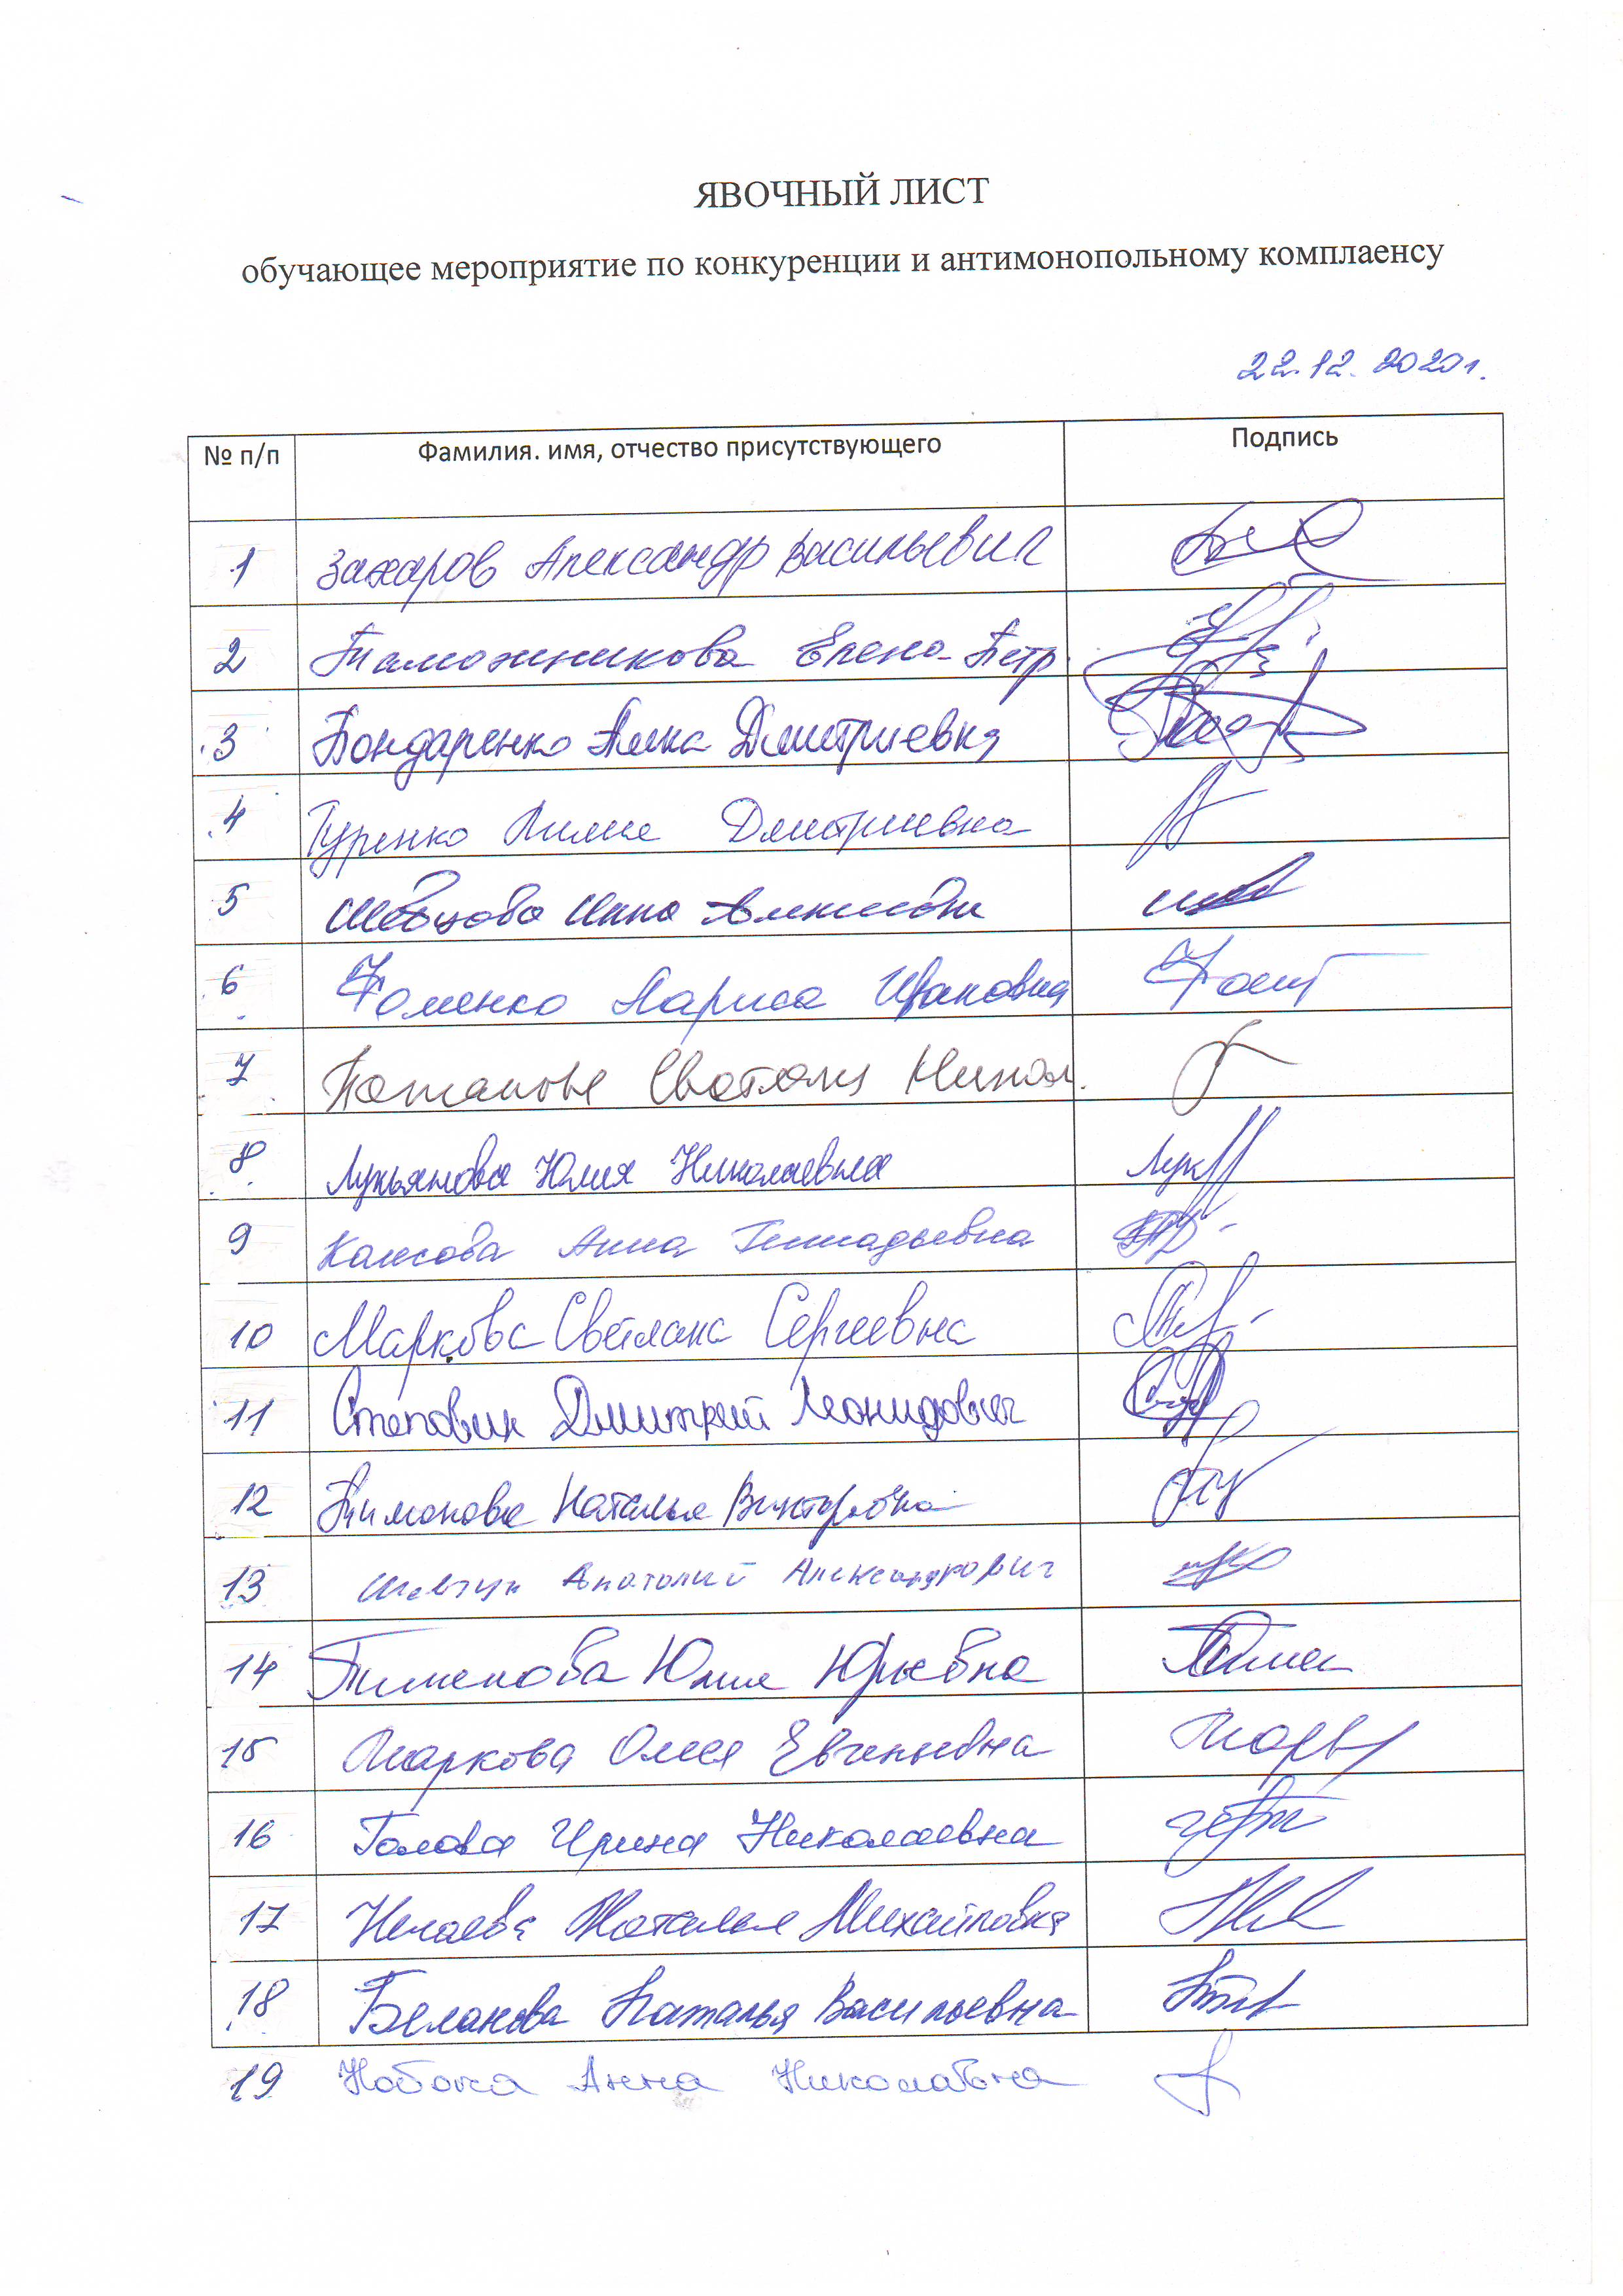 ЯВОЧНЫЙ ЛИСТ
обучающее мероприятие по конкуренции и антимонопольному комплаенсу
22.12.2020г.
№ п/п Фамилия. имя, отчество присутствующего Подпись
1 Захаров Александр Васильевич
2 Таможникова Елена Петр.
3 Бондаренко Дмитриевна
4 Гуренко Лилия Дмитриевна
5 Шевцова Инна
6 Фоменко Лариса Ивановна
7 Светлана Никол.
8 Лукьянова Юлия Николаевна Лук
9 Анна Геннадьевна
10 Маркова Светлана Сергеевна
11 Дмитрий Леонидович
12 Тимонова Наталья Викторовна
13 Шевчук Анатолий Александрович
14 Юлия Юрьевна
15 Маркова Олеся Евгеньевна
16 Ирина Николаевна
17 Нечаева Наталья Михайловна
18 Беланова Наталья Васильевна
19 Набока Анна Николаевна